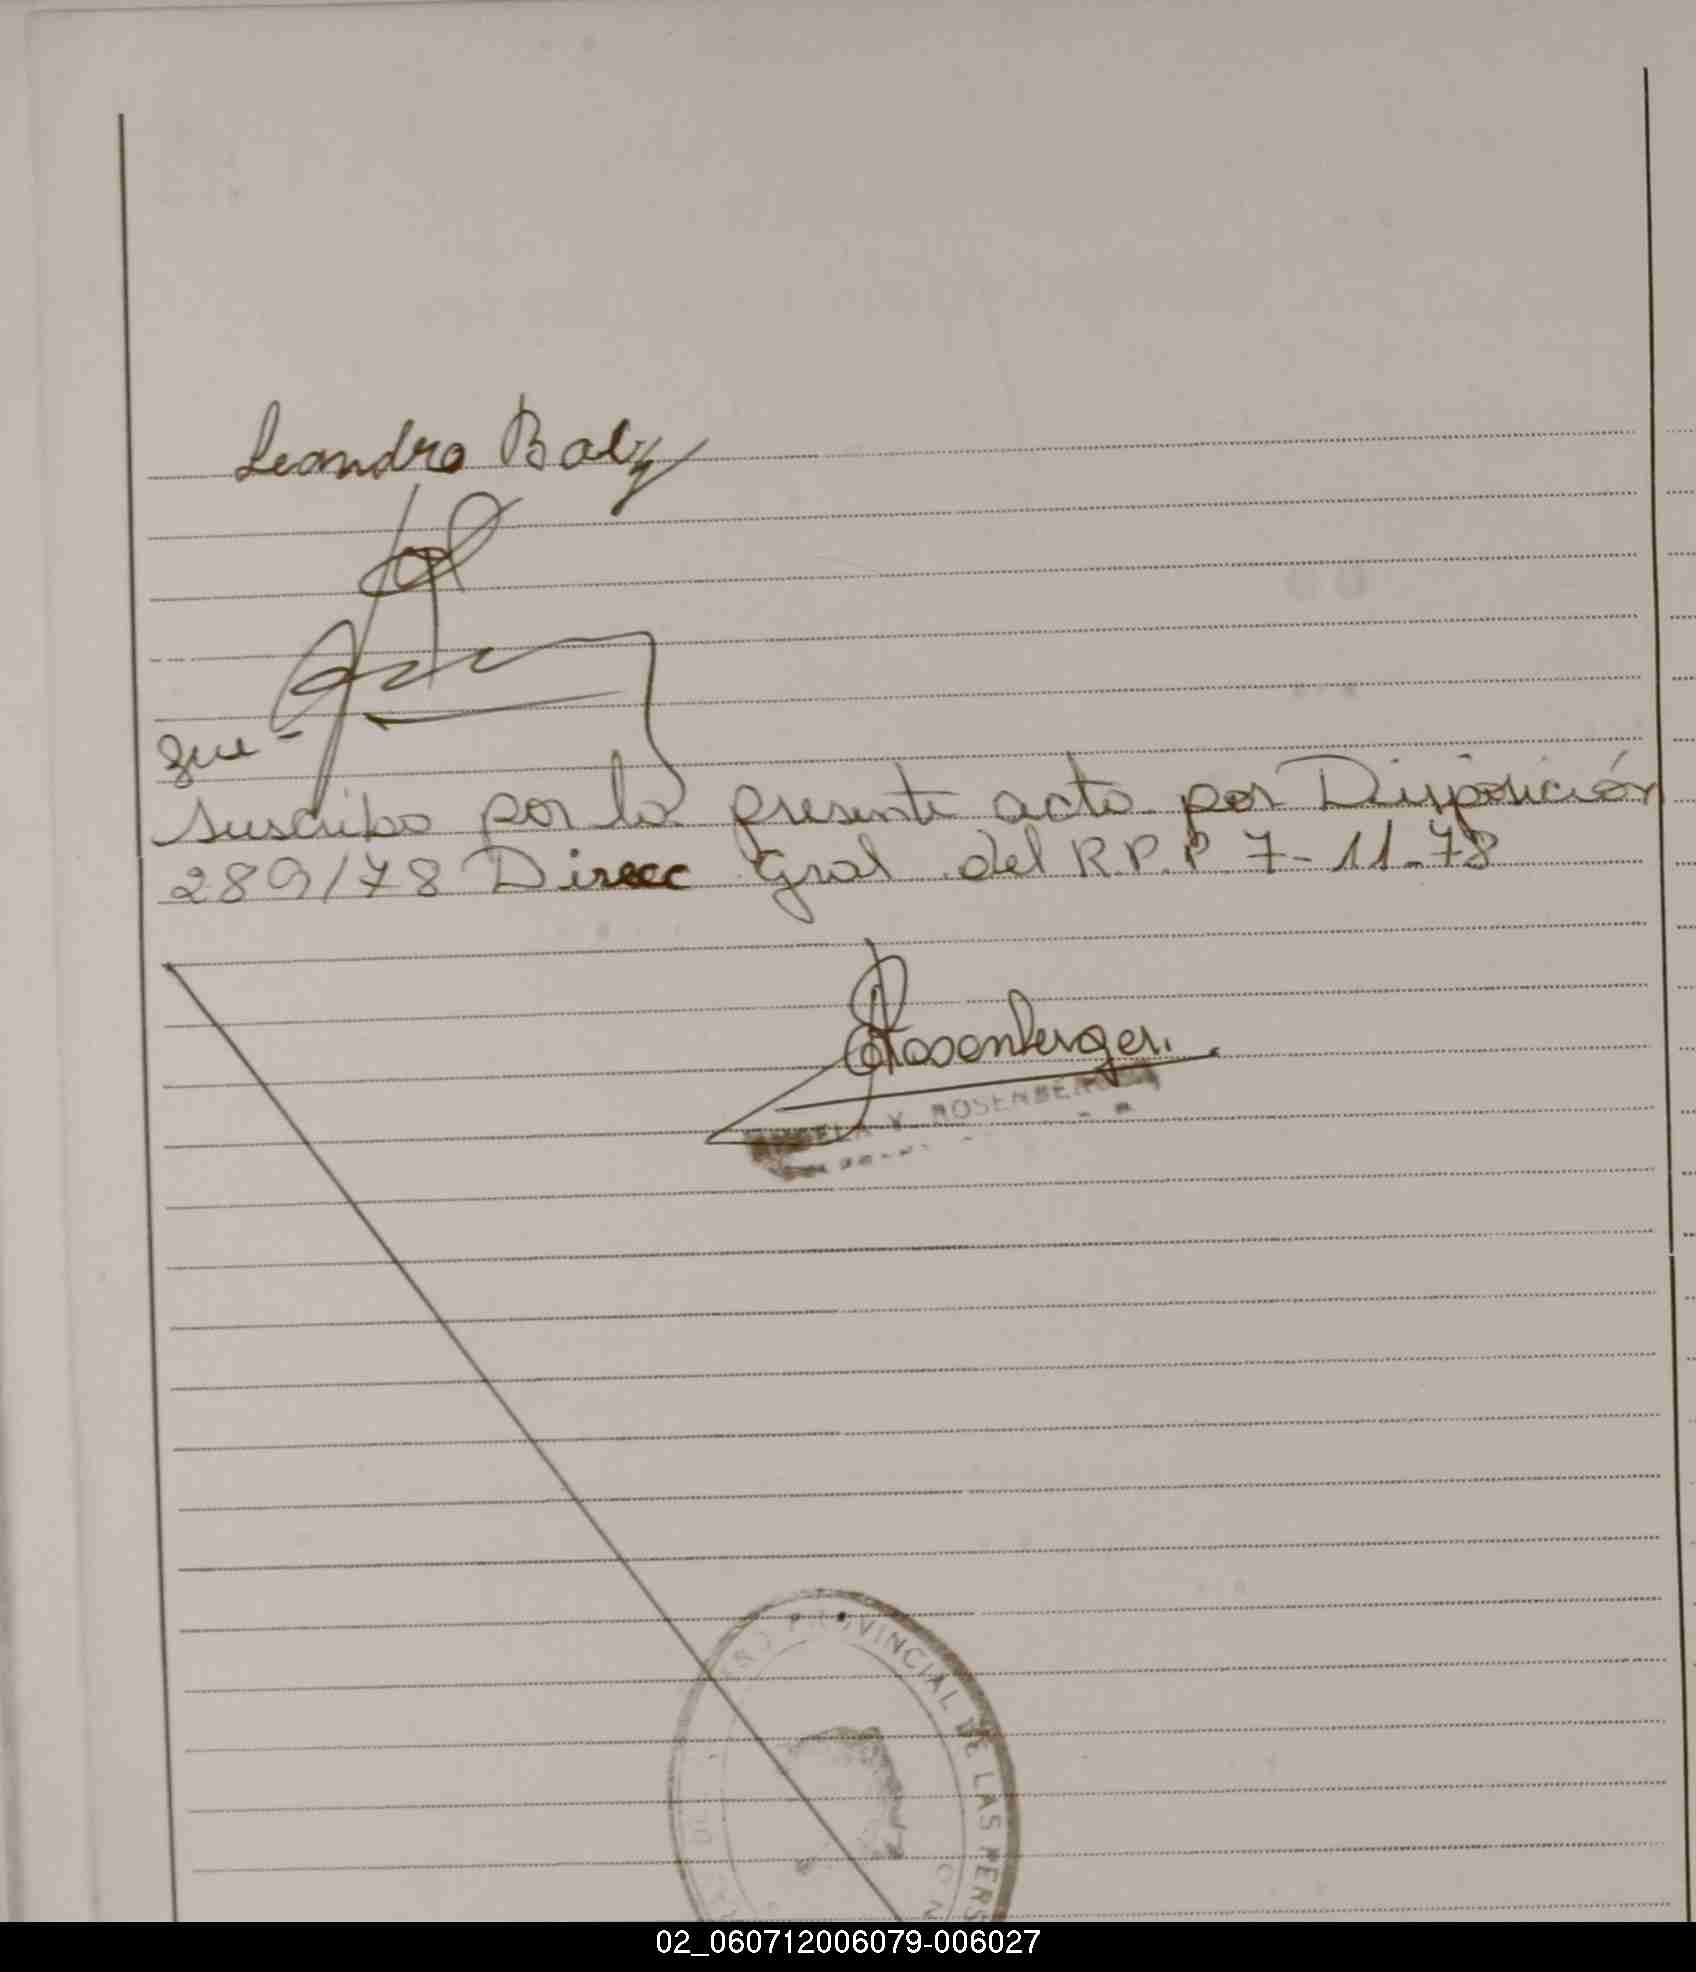 Leandro Balz
que -
suscribo por la presente acta por Disposición
289/78 Direcc Gral del R.P.P 7-11-78
Rosenberger.
ANGELA V. ROSENBERGER
PROVINCIAL DE LAS PERS
02_060712006079-006027